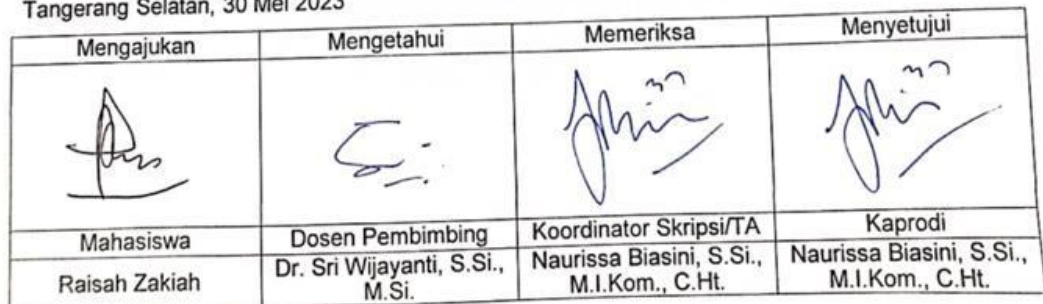 Tangerang Selatan, 30 Mei 2023
Mengajukan Mengetahui Memeriksa Menyetujui
Mahasiswa Dosen Pembimbing Koordinator Skripsi/TA Kaprodi
Raisah Zakiah
Dr. Sri Wijayanti, S.Si.,
M.Si.
Naurissa Biasini, S.Si.,
M.I.Kom., C.Ht.
Naurissa Biasini, S.Si.,
M.I.Kom., C.Ht.